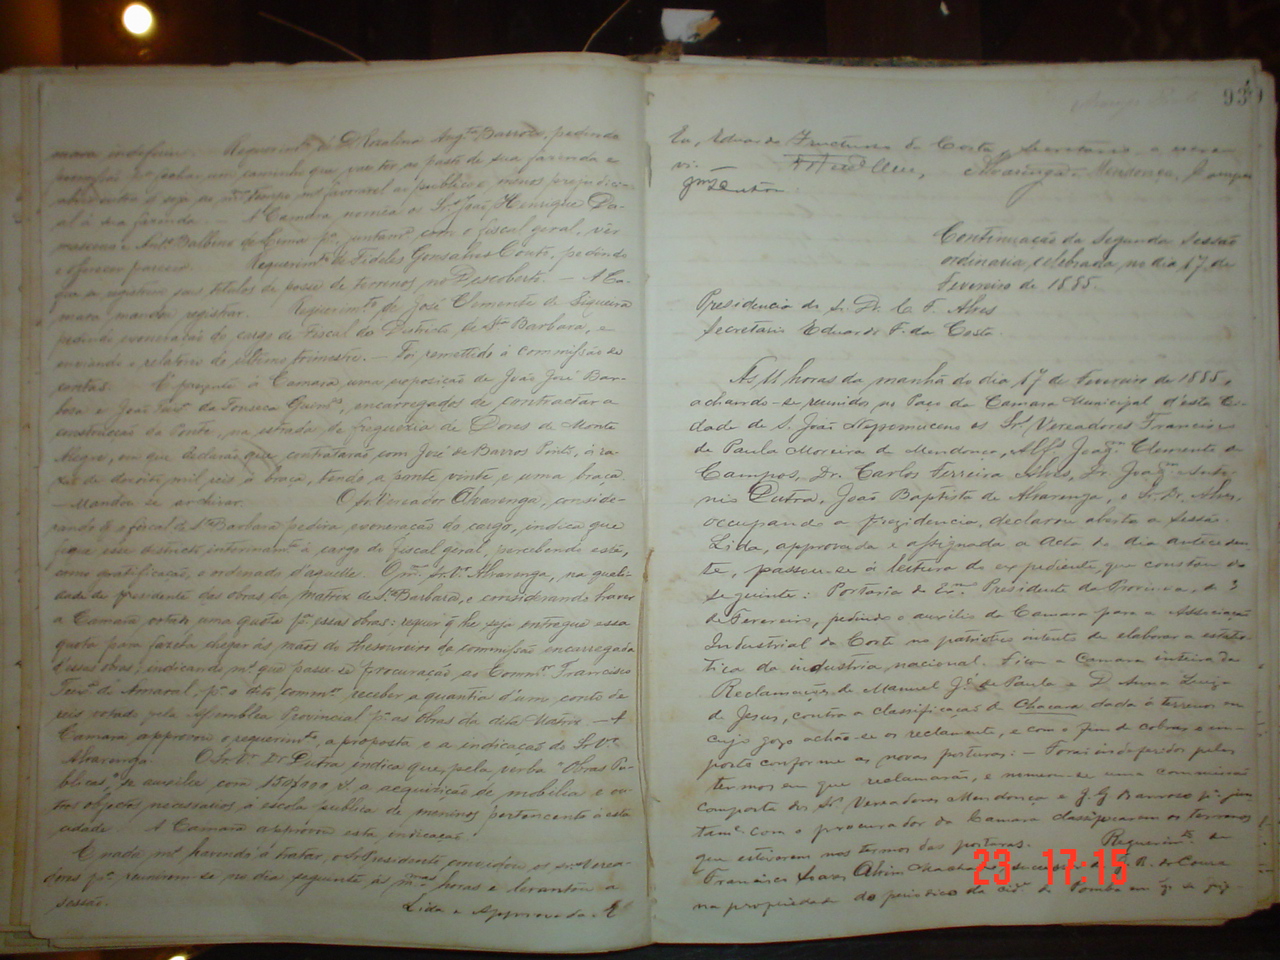 mara indeferiu. Requerimto de D Rosalina Augta Barroso, pedindo
permissão pa fechar um caminho que vai ter ao pasto de sua fazenda e
abrir outro q seja ao mmo tempo mais favoravel ao publico e menos prejudici-
al á sua fazenda. — A Camara nomêa os Srs João Henrique Da-
masceno e Anto Balbino de Lima pa juntamte com o fiscal geral, ver
e oferecer parecer. Requerimto de Fideles Gonsalves Conte, pedindo
que se registrem seus titulos de posse de terrenos no Descoberto. — A Ca-
mara mandou registrar. Requerimto de José Clemente de Siqueira
pedindo exoneração do cargo de Fiscal do Districto de Sta Barbara, e
enviando o relatorio do ultimo trimestre. — Foi remettido á Commissão de
contas. É presente á Camara uma exposição de João José Bar-
bosa e João da Fonseca encarregados de contractar a
construcção da Ponte, na estrada da freguezia de Dores do Monte
Alegre, em que declarão que contratarão com José de Barros Pinto, á ra-
zão de mil reis a braça, tendo a ponte vinte e uma braça
— Mandou-se archivar. O Sr. Vereador Alvarenga, conside-
rando q o fiscal de Sta Barbara pedira exoneração do cargo, indica que
fique esse districto interinamte á cargo do Fiscal geral, percebendo este,
como gratificação, o ordenado d'aquelle. O mmo Sr. Vr Alvarenga, na quali-
dade de presidente das obras da Matriz de Sta Barbara, e considerando haver
a Camara votado uma quota pa essas obras: requer q lhe seja entregue essa
quota para fazêl-a chegar ás mãos do thesoureiro da commissão encarregada
d'essas obras; indicando mais que passe-se procuração ao Commor Francisco
Ferra de Amaral, pa o dito commor receber a quantia d'um conto de
reis votado pela Assemblea Provincial pa as obras da dita Matriz — A
Camara approvou o requerimto, a proposta e a indicação do Sr Vr
Alvarenga. O Sr Vr Dr Dutra indica que, pela verba "Obras Pu-
blicas", se auxilie com 150$000 rs a acquisição de mobilia e ou-
tros objectos necessarios á escola publica de meninos pertencente á esta
cidade A Camara approvou esta indicação
E nada mais havendo á tratar, o Sr Presidente convidou os srs verea-
dores pa reunirem-se no dia seguinte ás mmas horas e levantou a
sessão. Lida e Approvada. E
93
Eu, Eduardo da Costa, Secretario, a escre-
vi. Alvarenga, Mendonça, Campos
Continuação da Segunda Sessão
ordinaria, celebrada no dia 17 de
Fevereiro de 1885.
Presidencia do Sr. Dr. C. F. Alves
Secretario Eduardo F. da Costa
As 11 horas da manhã do dia 17 de Fevereiro de 1885,
achando-se reunidos no Paço da Camara Municipal d'esta Ci-
dade de S. João Nepomuceno os Srs Vereadores Francisco
de Paula Moreira de Mendonça, Alfs Joaqm Clemente de
Campos, Dr. Carlos Ferreira Alves, Dr. Joaqm Anto-
nio Dutra, João Baptista de Alvarenga, o Sr. Dr. Alves,
occupando a prezidencia, declarou aberta a Sessão.
Lida, approvada e assignada a Acta do dia anteceden-
te, passou-se á leitura do expediente, que constou do
seguinte: Portaria do Exmo Presidente da Provincia, de 3
de Fevereiro, pedindo o auxilio da Camara para a Associação
Industrial da Corte no patriotico intento de elaborar a estatis-
tica da industria nacional. Ficou a Camara inteirada
Reclamações de Manuel Je de Paula e D Anna Luiza
de Jesus, contra a classificação de Chacara dada á terrenos em
cujo gozo achão-se os reclamante, e com o fim de cobrar-se im-
posto conforme as novas posturas: — Foram indeferidos pelos
termos em que reclamarão, e nomeou-se uma commissão
composta dos Srs Vereadores Mendonça e J. G Barroso pa jun-
tamte com o procurador da Camara classificarem os terrenos
que estiverem nos termos das posturas. Requerimto de
Francisco Soares Alvim Machado, successor de F. R. do Couto
na propriedade do periodico da cide de Pomba em q se
23 17:15